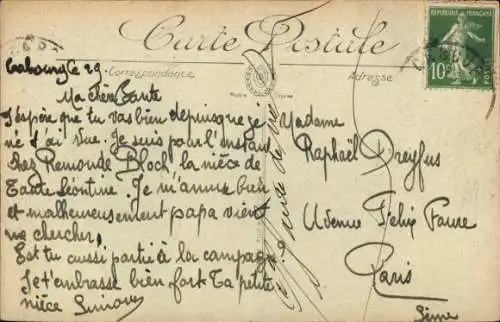 Carte Postale
Correspondance
Adresse
RÉPUBLIQUE FRANÇAISE
10
POSTES
Cabourg Le 29
Ma chère Tante
J'espère que tu vas bien depuis que je
ne t'ai vue. Je suis pour l'instant
chez Remonde Bloch la nièce de
Tante Léontine. Je m'amuse bien
et malheureusement papa vient
me chercher.
Est tu aussi partie à la campagne
Je t'embrasse bien fort Ta petite
nièce Simone
Madame
Raphaël Dreyfus
Avenue Felix Faure
Paris
Seine